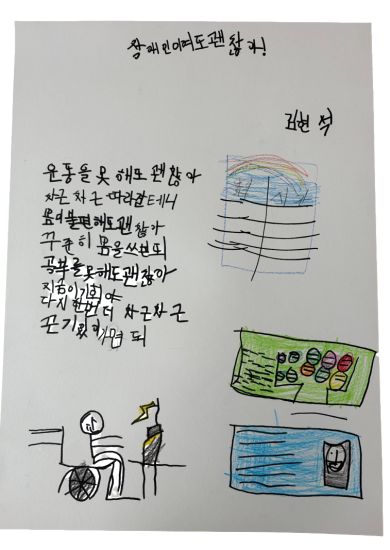 장애인이여도괜찮아!
김현석
운동을못해도괜찮아
차근차근따라갈테니
몸이불편해도괜찮아
꾸준히몸을쓰면되
공부를못해도괜찮아
지금이기회야
다시한번더 차근차근
끈기있게가면 되